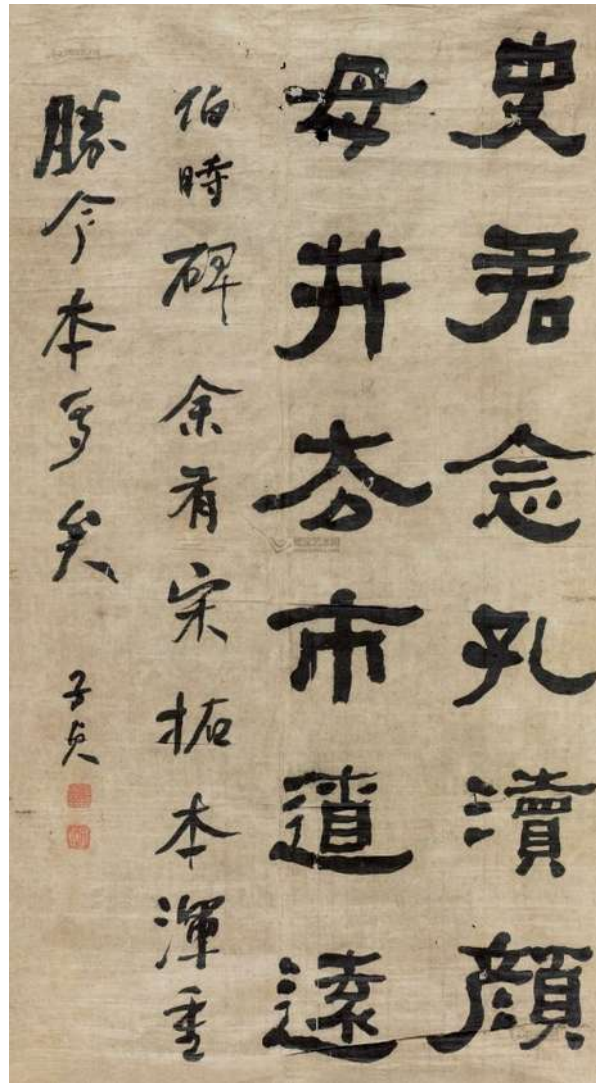 史君念孔瀆顏
母井去市遼遠
伯時碑余有宋拓本渾重
勝今本多矣
子貞